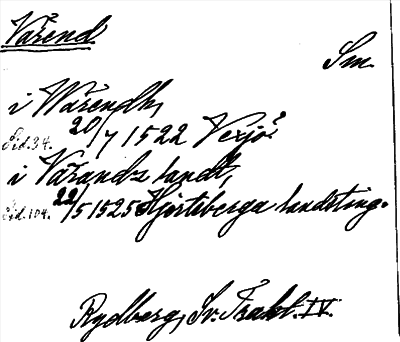 Värend
Sm.
i Wärendh,
Sid. 34. 20/7 1522 Vexjö.
i Värandz landt,
Sid. 104. 22/5 1525 Hjortsberga landsting.
Rydberg, Sv. Trakt. IV.